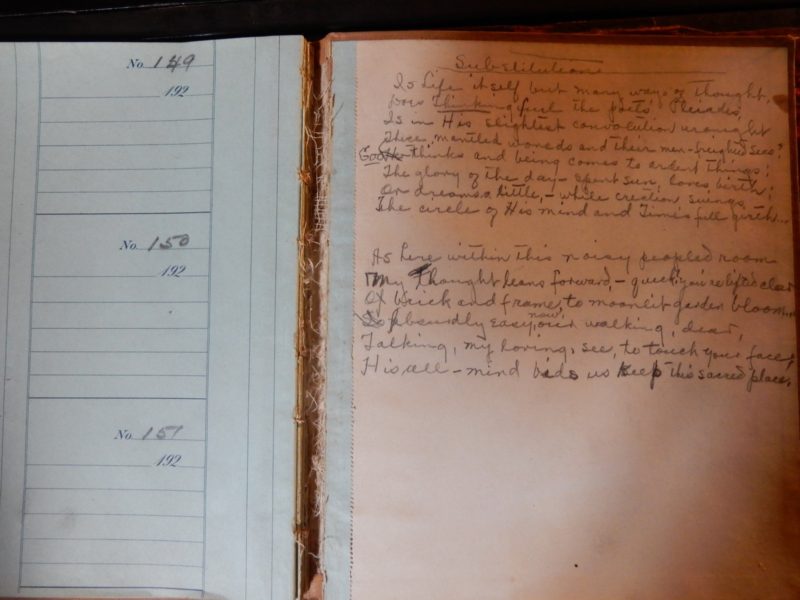 No. 149
192
No. 150
192
No. 151
192
Substitution
Is Life itself but many ways of thought,
Does Thinking fuel the poets' Pleiades,
Is in His slightest convolution wrought
These mantled worlds and their men-freighted seas?
God thinks and being comes to ardent things:
The glory of the day-spent sun, loves birth,
Or dreams a little, - while creation swings
The circle of His mind and Time's full girth...
As here within this noisy peopled room
My Thought leans forward, - quick, you're lifted clear
Of brick and frame, to moonlit garden bloom...
Absurdly easy, now, our walking, dear,
Talking, my loving, see, to touch your face,
His all-mind bids us keep this sacred place.